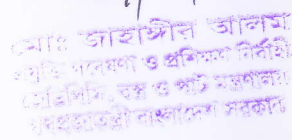 মোঃ জাহাঙ্গীর আলম
গবেষণা ও প্রশিক্ষণ
বস্ত্র ও পাট মন্ত্রণালয়
গণপ্রজাতন্ত্রী বাংলাদেশ সরকার